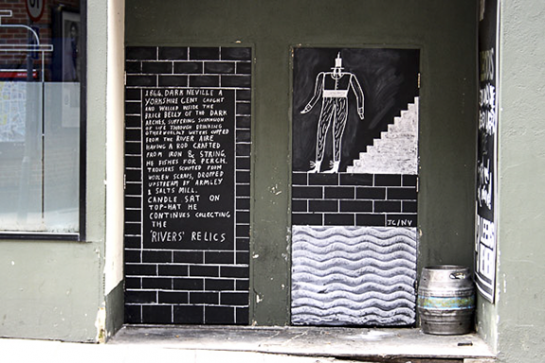 1866, DARK NEVILLE A
YORKSHIRE GENT CAUGHT
AND WALLED INSIDE THE
BRICK BELLY OF THE DARK
ARCHES, SUFFERING SUMMON
UP LIFE THROUGH DRINKING
OTHERWORLDLY WATERS CUPPED
FROM THE RIVER AIRE
HAVING A ROD CRAFTED
FROM IRON & STRING
HE FISHES FOR PERCH.
TROUSERS SCULPTED FROM
WOOLEN SCRAPS, DROPPED
UPSTREAM BY ARMLEY
& SALTS MILL.
CANDLE SAT ON
TOP-HAT HE
CONTINUES COLLECTING
THE
'RIVERS' RELICS
JC/NV